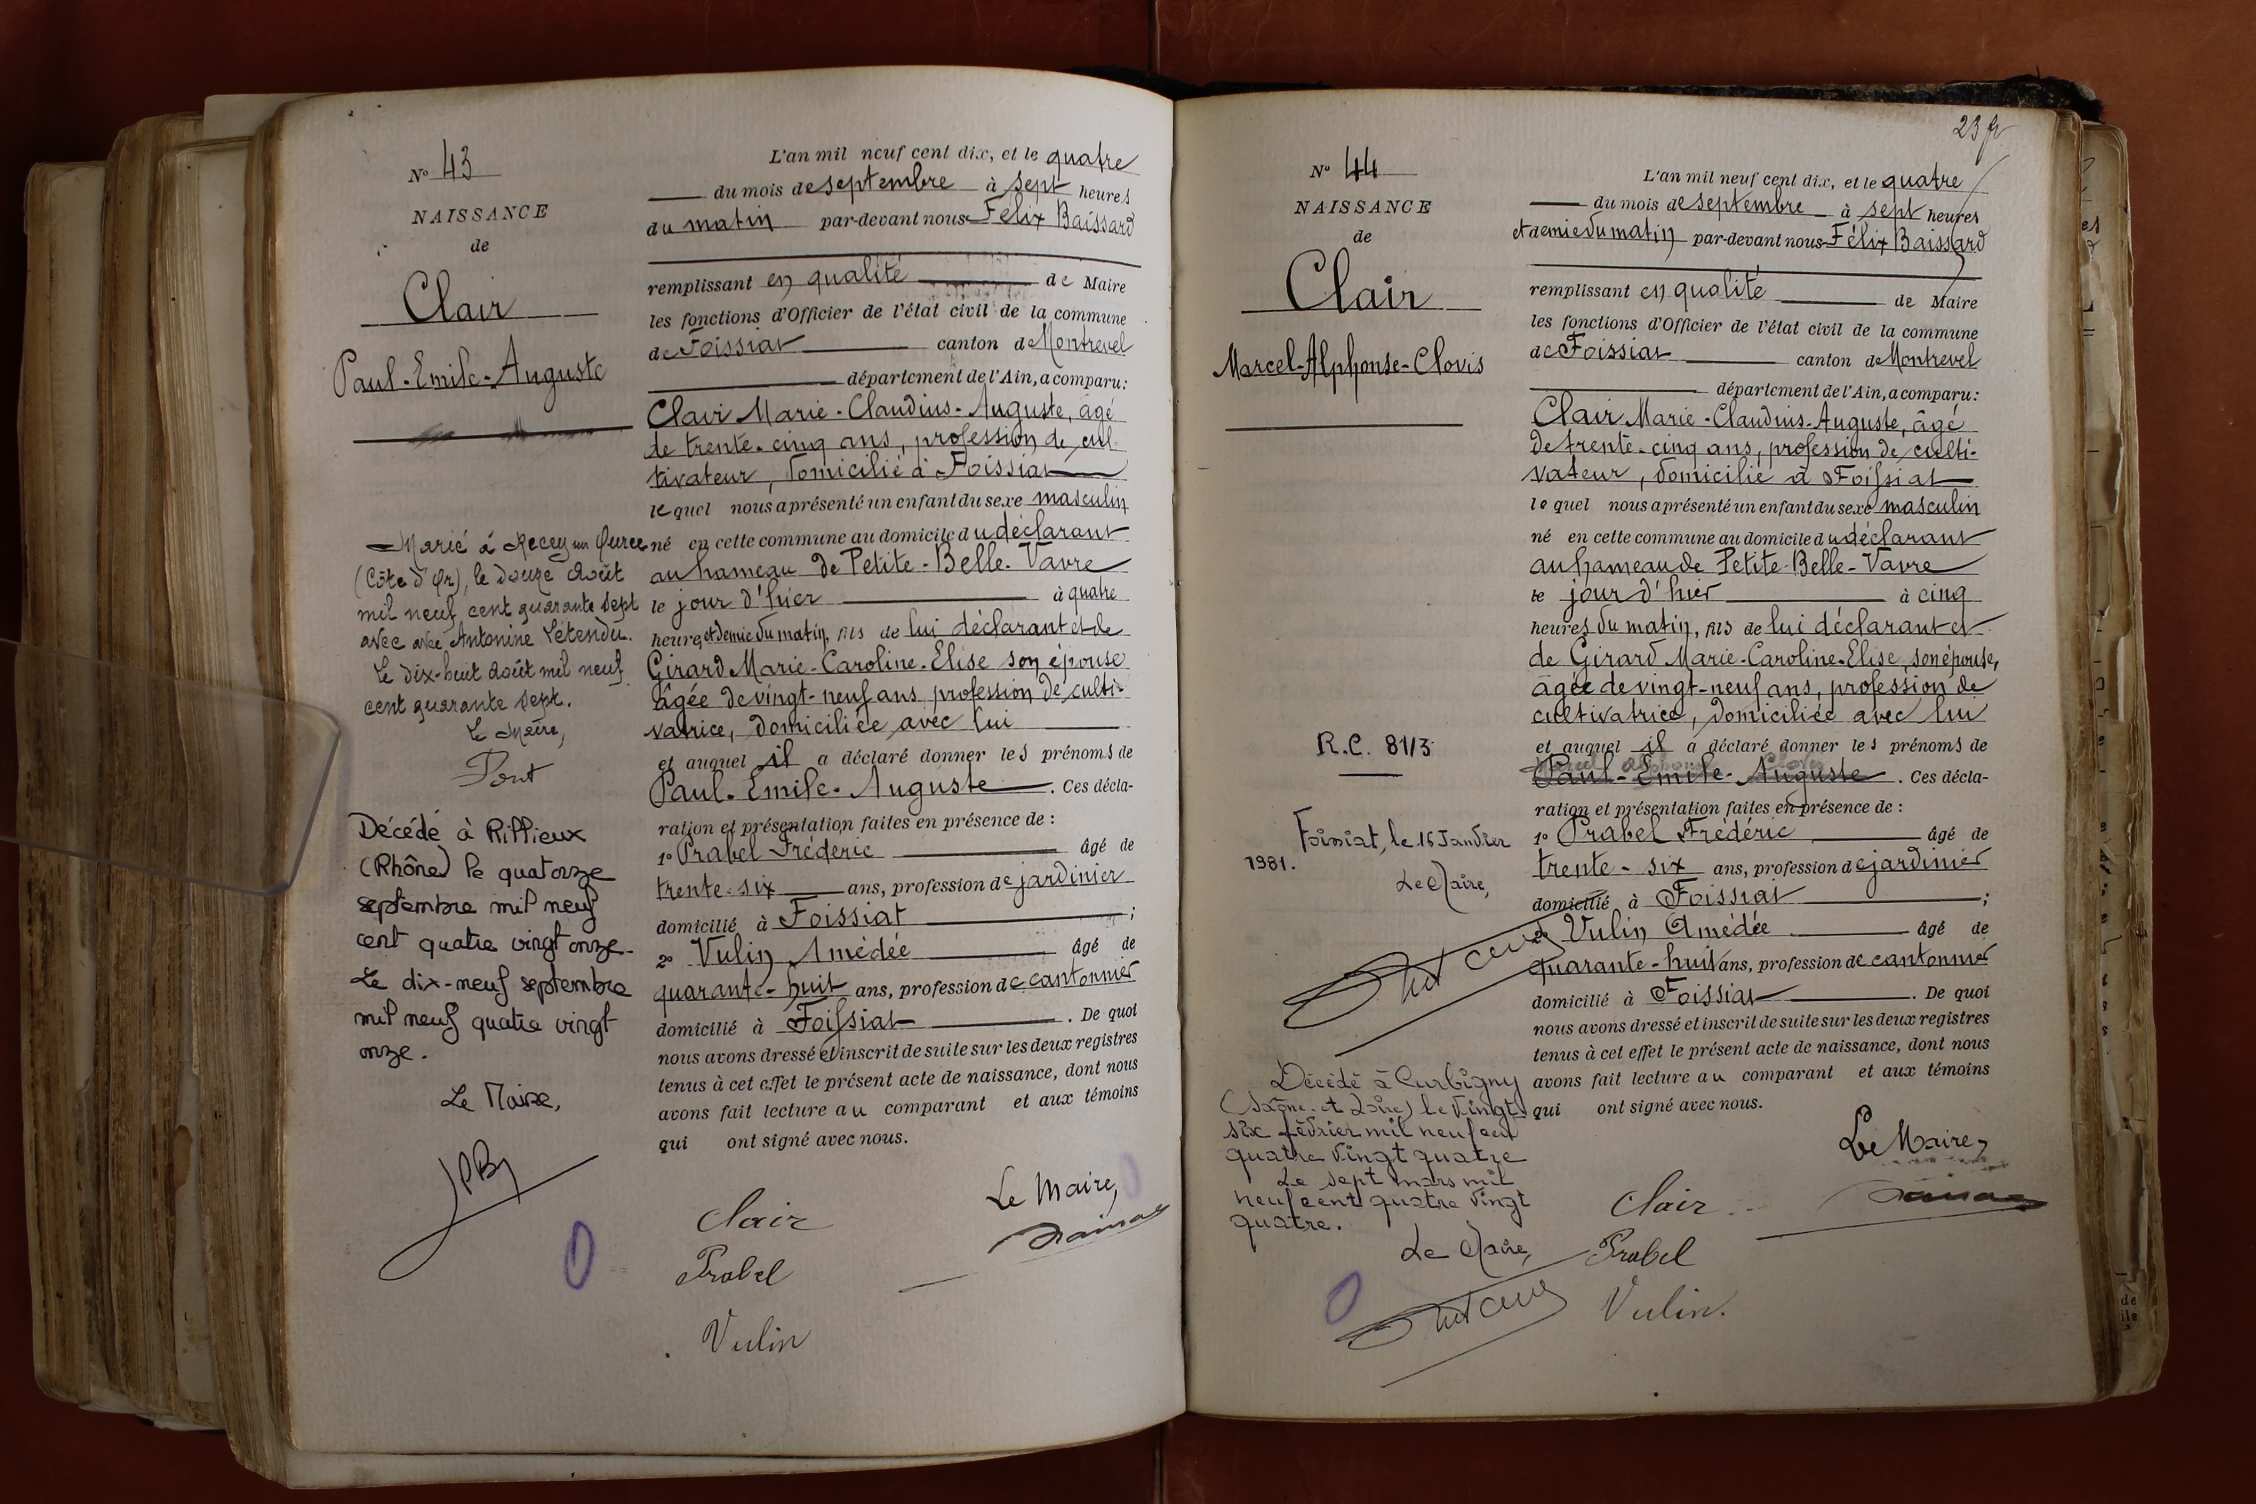 N° 43
NAISSANCE
de
Clair
Paul-Emile-Auguste
Marié à Recey sur Ource
(Côte d'Or), le douze Août
mil neuf cent quarante sept
avec avec Antonine Létendu.
Le dix-huit Août mil neuf
cent quarante sept.
Le Maire,
Pont
Décédé à Rillieux
(Rhône) le quatorze
septembre mil neuf
cent quatre vingt onze.
Le dix-neuf septembre
mil neuf quatre vingt
onze.
Le Maire,
L'an mil neuf cent dix, et le quatre
du mois de septembre à sept heures
du matin par-devant nous Félix Baissard
remplissant en qualité de Maire
les fonctions d'Officier de l'état civil de la commune
de Foissiat canton de Montrevel
département de l'Ain, a comparu:
Clair Marie-Claudius-Auguste, âgé
de trente-cinq ans, profession de cul-
tivateur, domicilié à Foissiat
lequel nous a présenté un enfant du sexe masculin
né en cette commune au domicile du déclarant
au hameau de Petite-Belle-Vavre
le jour d'hier à quatre
heures et demie du matin, fils de lui déclarant et de
Girard Marie-Caroline-Elise son épouse
âgée de vingt-neuf ans, profession de culti-
vatrice, domiciliée avec lui
et auquel il a déclaré donner les prénoms de
Paul-Emile-Auguste. Ces décla-
ration et présentation faites en présence de :
1° Prabel Frédéric âgé de
trente-six ans, profession de jardinier
domicilié à Foissiat ;
2° Vulin Amédée âgé de
quarante-huit ans, profession de cantonnier
domicilié à Foissiat. De quoi
nous avons dressé et inscrit de suite sur les deux registres
tenus à cet effet le présent acte de naissance, dont nous
avons fait lecture au comparant et aux témoins
qui ont signé avec nous.
Le Maire,
Clair
Prabel
Vulin
23
N° 44
NAISSANCE
de
Clair
Marcel-Alphonse-Clovis
R.C. 81/3
Foissiat, le 16 Janvier
1981.
Le Maire,
Décédé à Curbigny
(Saône-et-Loire) le vingt
six février mil neuf cent
quatre vingt quatre
Le sept mars mil
neuf cent quatre vingt
quatre.
Le Maire,
L'an mil neuf cent dix, et le quatre
du mois de septembre à sept heures
et demie du matin par-devant nous Félix Baissard
remplissant en qualité de Maire
les fonctions d'Officier de l'état civil de la commune
de Foissiat canton de Montrevel
département de l'Ain, a comparu:
Clair Marie-Claudius-Auguste, âgé
de trente-cinq ans, profession de culti-
vateur, domicilié à Foissiat
lequel nous a présenté un enfant du sexe masculin
né en cette commune au domicile du déclarant
au hameau de Petite-Belle-Vavre
le jour d'hier à cinq
heures du matin, fils de lui déclarant et
de Girard Marie-Caroline-Elise, son épouse,
âgée de vingt-neuf ans, profession de
cultivatrice, domiciliée avec lui
et auquel il a déclaré donner les prénoms de
Marcel Alphonse Clovis
Paul-Emile-Auguste. Ces décla-
ration et présentation faites en présence de :
1° Prabel Frédéric âgé de
trente-six ans, profession de jardinier
domicilié à Foissiat ;
2° Vulin Amédée âgé de
quarante-huit ans, profession de cantonnier
domicilié à Foissiat. De quoi
nous avons dressé et inscrit de suite sur les deux registres
tenus à cet effet le présent acte de naissance, dont nous
avons fait lecture au comparant et aux témoins
qui ont signé avec nous.
Le Maire,
Clair
Prabel
Vulin.